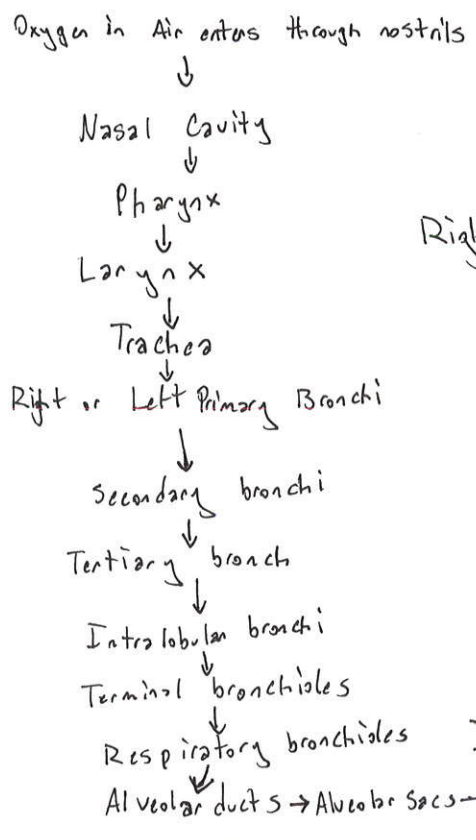 Oxygen in Air enters through nostrils
↓
Nasal Cavity
↓
Pharynx
↓
Larynx
↓
Trachea
↓
Right or Left Primary Bronchi
↓
Secondary bronchi
↓
Tertiary bronch
↓
Intralobular bronchi
↓
Terminal bronchioles
↓
Respiratory bronchioles
↓
Alveolar ducts → Alveolar Sacs